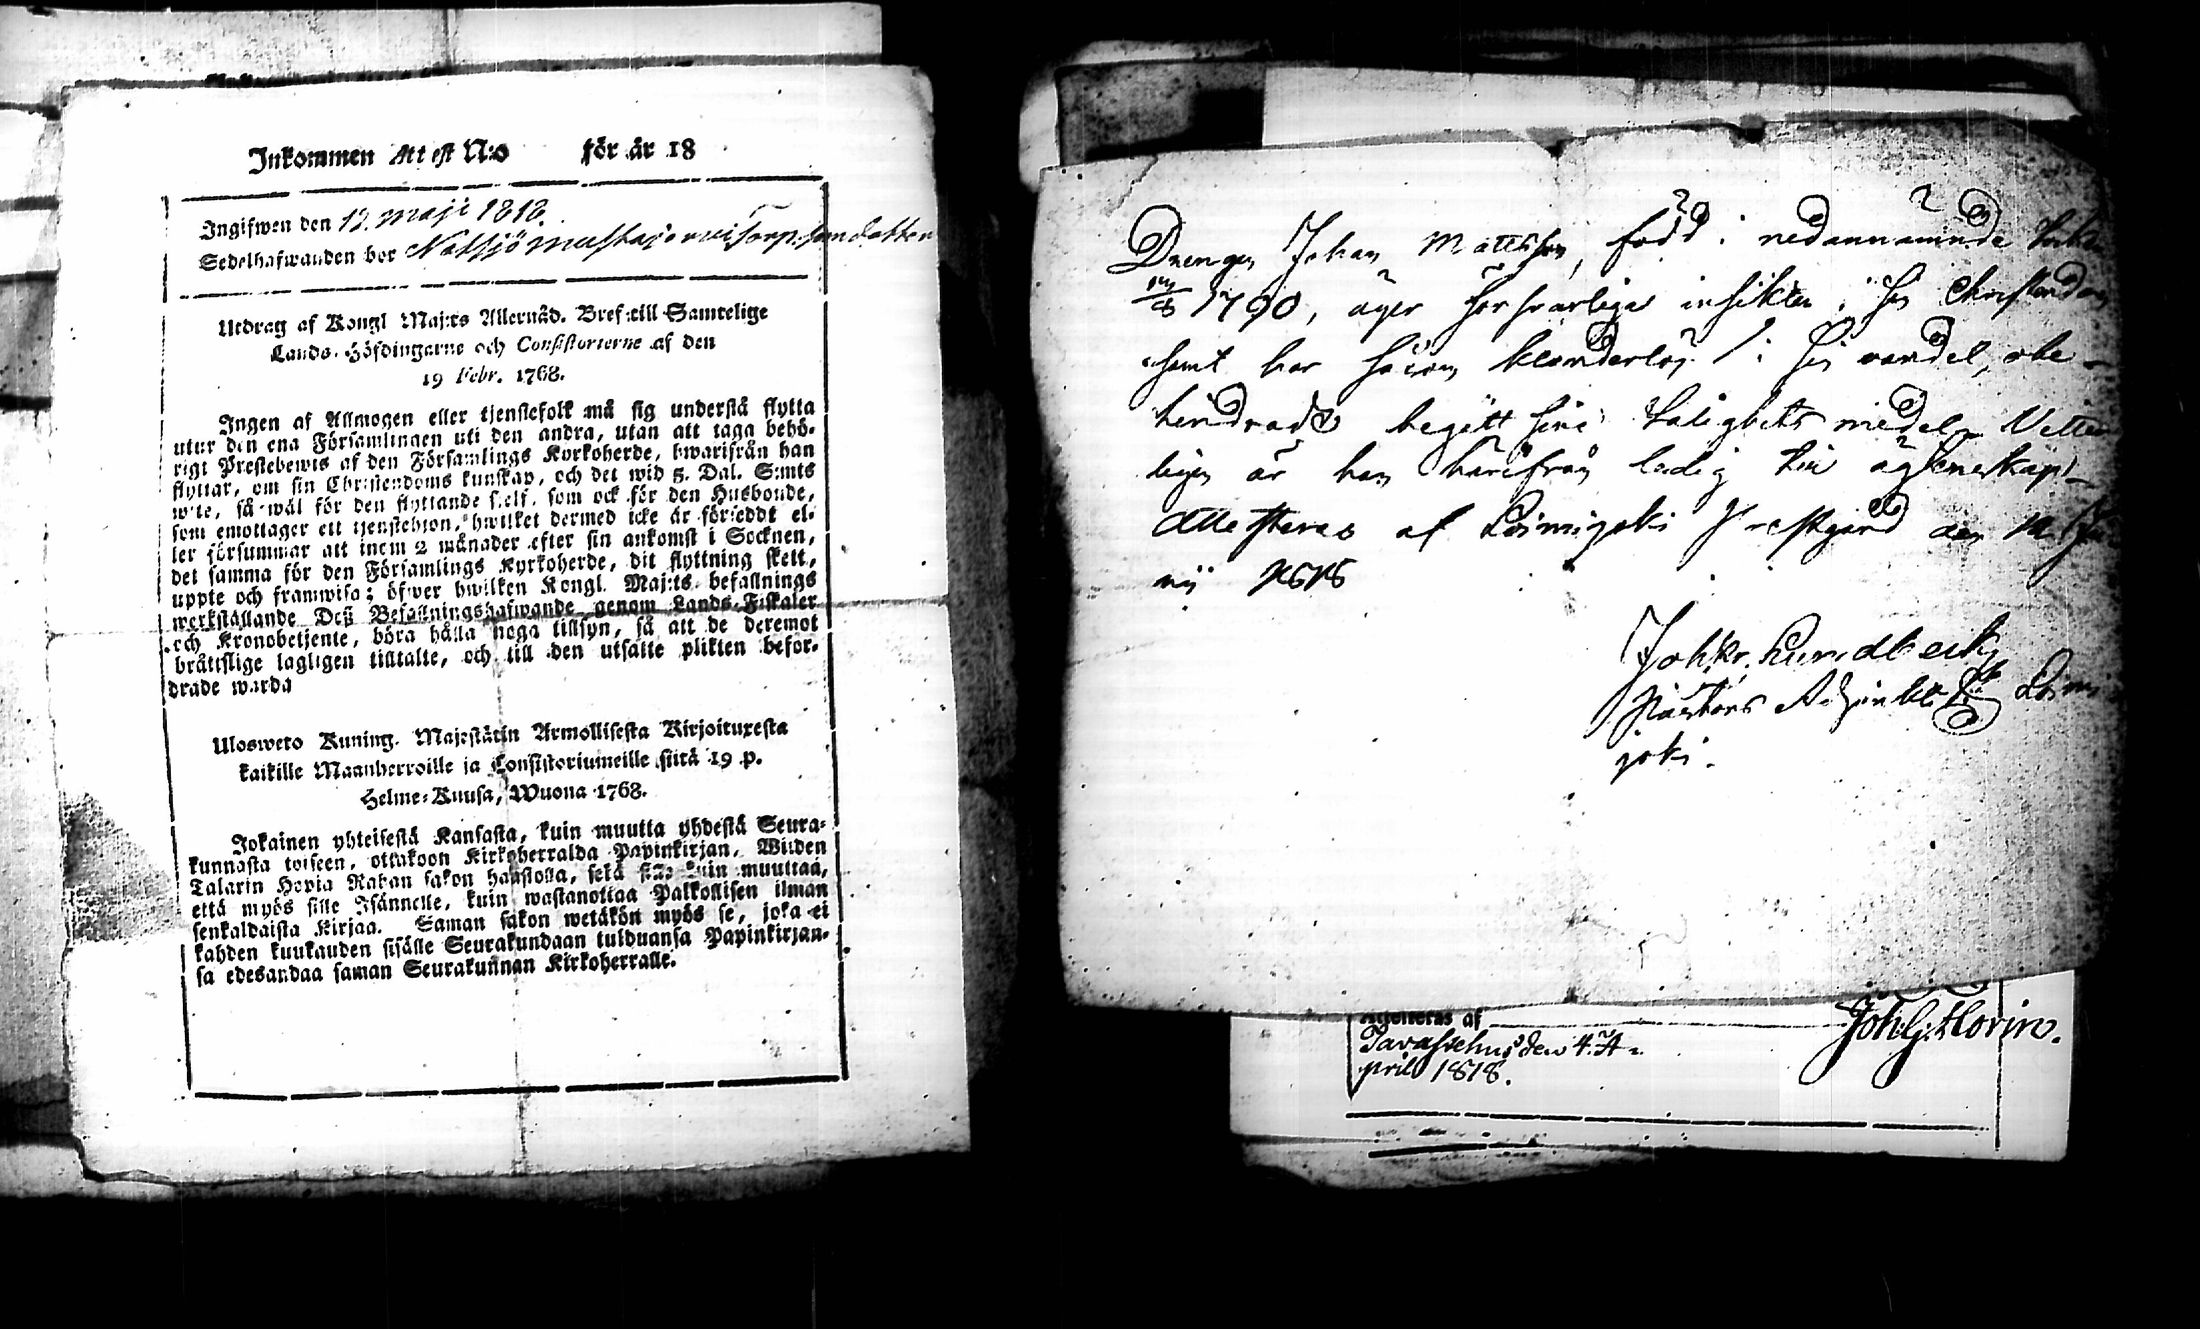 Inkommen Attest N:o för år 18
Ingifwen den 12. maji 1818.
Sedelhafwanden bor Natsjö torp
Utdrag af Kongl Maj:ts Allernåd. Bref till Samtelige
Lands-Höfdingarne och Consistorierne af den
19 Febr. 1768.
Ingen af Allmogen eller tjenstefolk må sig understå flytta
utur den ena Församlingen uti den andra, utan att taga behö-
rigt Prestebewis af den Församlings Kyrkoherde, hwarifrån han
flyttar, om sin Christendoms kunskap, och det wid 5. Dal. S:mts
wite, så wäl för den flyttande sjelf, som ock för den Husbonde,
som emottager ett tjenstehion, hwilket dermed icke är försedt el-
ler försummar att inom 2 månader efter sin ankomst i Socknen,
det samma för den Församlings Kyrkoherde, dit flyttning skett,
uppte och framwisa; öfwer hwilken Kongl. Maj:ts befallnings
werkställande Deß Befallningshafwande genom Lands-Fiskaler
och Kronobetjente, böra hålla noga tillsyn, så att de deremot
bråttslige lagligen tilltalte, och till den utsatte plikten befor-
drade warda
Ulosweto Kuning. Majestätin Armollisesta Kirjoituxesta
kaikille Maanherroille ja Consistoriumeille siitä 19 p.
Helme-Kuusa, Wuona 1768.
Jokainen yhteisestä Kansasta, kuin muutta yhdestä Seura-
kunnasta toiseen, ottakoon Kirkoherralda Papinkirjan, Wiiden
Talarin Hopia Rahan sakon haastolla, sekä se kuin muuttaa,
että myös sille Isännelle, kuin wastanottaa Palkollisen ilman
senkaldaista Kirjaa. Saman sakon wetäkön myös se, joka ei
kahden kuukauden sisälle Seurakundaan tulduansa Papinkirjan-
sa edesandaa saman Seurakunnan Kirkoherralle.
Drengen Johan Mattsson, född i nedannämnde
1790, äger försvarliga insikter i sin Christendom
samt har såsom klanderlös i sin vandel, obe-
hindradt begått sine Salighets medel. Vitter-
ligen är han härifrån ledig till ägtenskap
Attesteras af Loimijoki Prestgård den Ju-
nii 1818
Joh. Kr. Lundbeck
Pastors Adjunkt i Loimi-
joki.
Attesteras af
Tavastehus den 4. A-
pril 1818.
Joh. G. Florin.